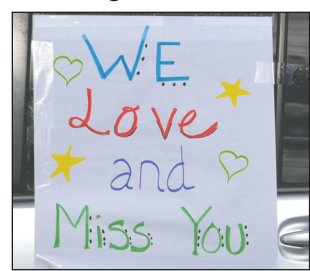 WE
Love
and
Miss You